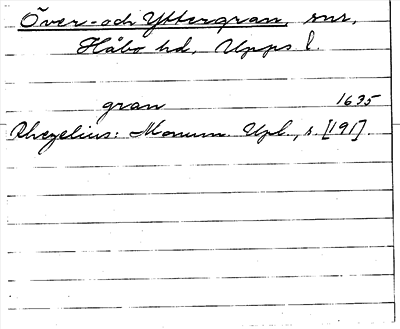 Över- och Yttergran, snr,
Håbo hd, Upps l.
gran 1635
Rhezelius: Monum. Upl., s. [191].